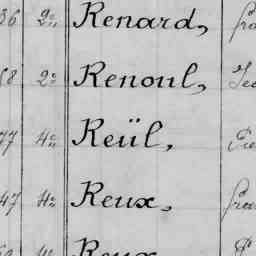 36 2e Renard,
68 2e Renoul,
77 4e Reül,
47 4e Reux,
4e Reux